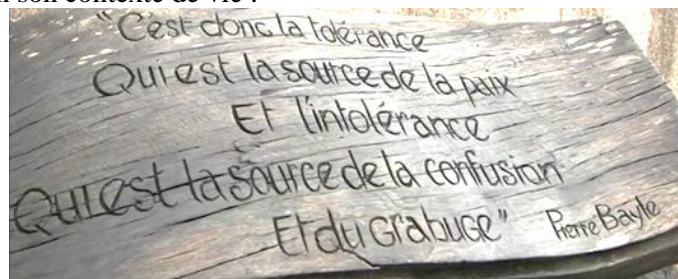 son contexte de vie :
"C'est donc la tolérance
Qui est la source de la paix
Et l'intolérance
Qui est la source de la confusion
Et du Grabuge" Pierre Bayle